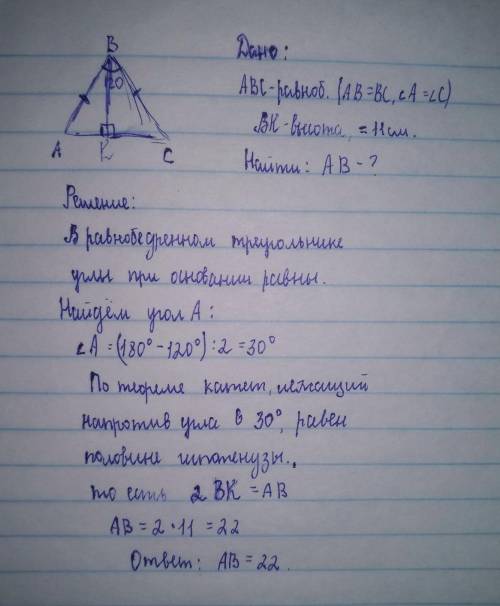 B
120
A
K
C
Дано:
ABC-равноб. (AB=BC, ∠A=∠C)
BK-высота, = 11 см.
Найти: AB - ?
Решение:
В равнобедренном треугольнике
углы при основании равны.
Найдём угол A:
∠A = (180° - 120°) : 2 = 30°
По теореме катет, лежащий
напротив угла в 30°, равен
половине гипотенузы.
то есть 2 BK = AB
AB = 2 · 11 = 22
Ответ: AB = 22.